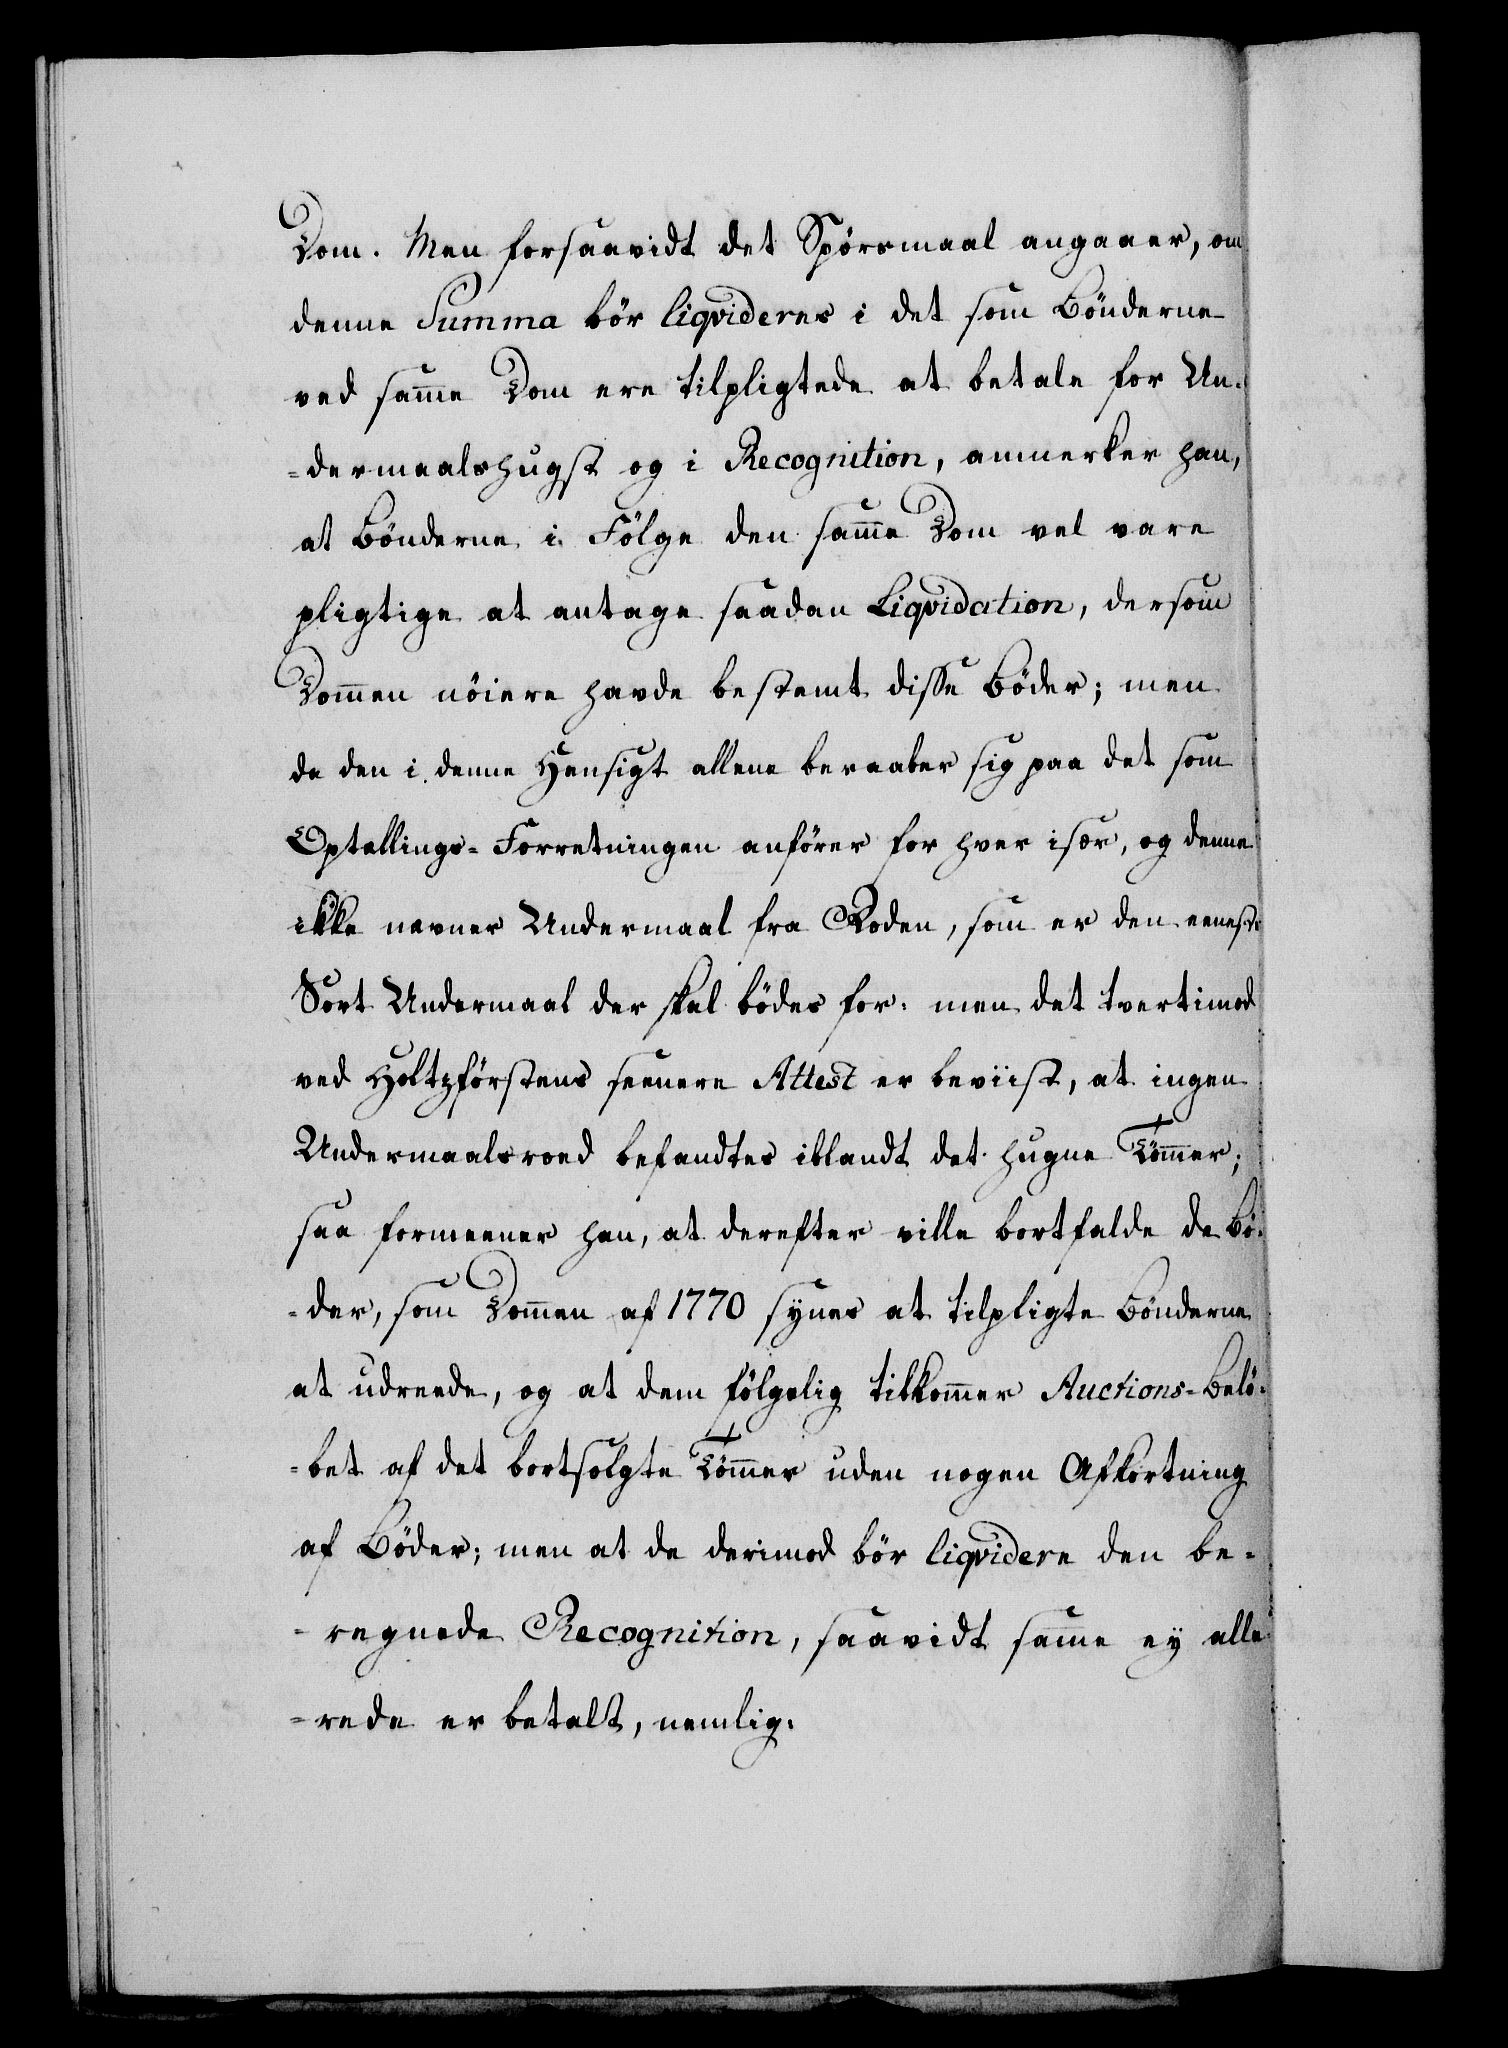 Dom. Men forsaavidt det Spörsmaal angaaer, om
denne Summa bör liqvideres i det som Bönderne
ved sam̄e Dom ere tilpligtede at betale for Un-
-dermaalshugst og i Recognition, anmerker han,
at Bönderne i Fölge den sam̄e Dom vel vare
pligtige at antage saadan Liqvidation, dersom
Dom̄en nöiere havde bestemt disse Böder; men
da den i denne Hensigt allene beraaber sig paa det som
Optællings-Forretningen anförer for hver især, og denne
ikke nævner Undermaal fra Roden, som er den eeneste
Sort Undermaal der skal bödes for: men det tvertimod
ved Holtzförstens seenere Attest er beviist, at ingen
Undermaalsroed befandtes iblandt det hugne Töm̄er;
saa formeener han, at derefter ville bortfalde de Bö-
-der, som Dom̄en af 1770 synes at tilpligte Bönderne
at udreede, og at dem fölgelig tilkom̄er Auctions-Belö-
-bet af det bortsolgte Töm̄er uden nogen Afkortning
af Böder; men at de derimod bör liqvidere den be-
-regnede Recognition, saavidt sam̄e ey alle-
-rede er betalt, nemlig: